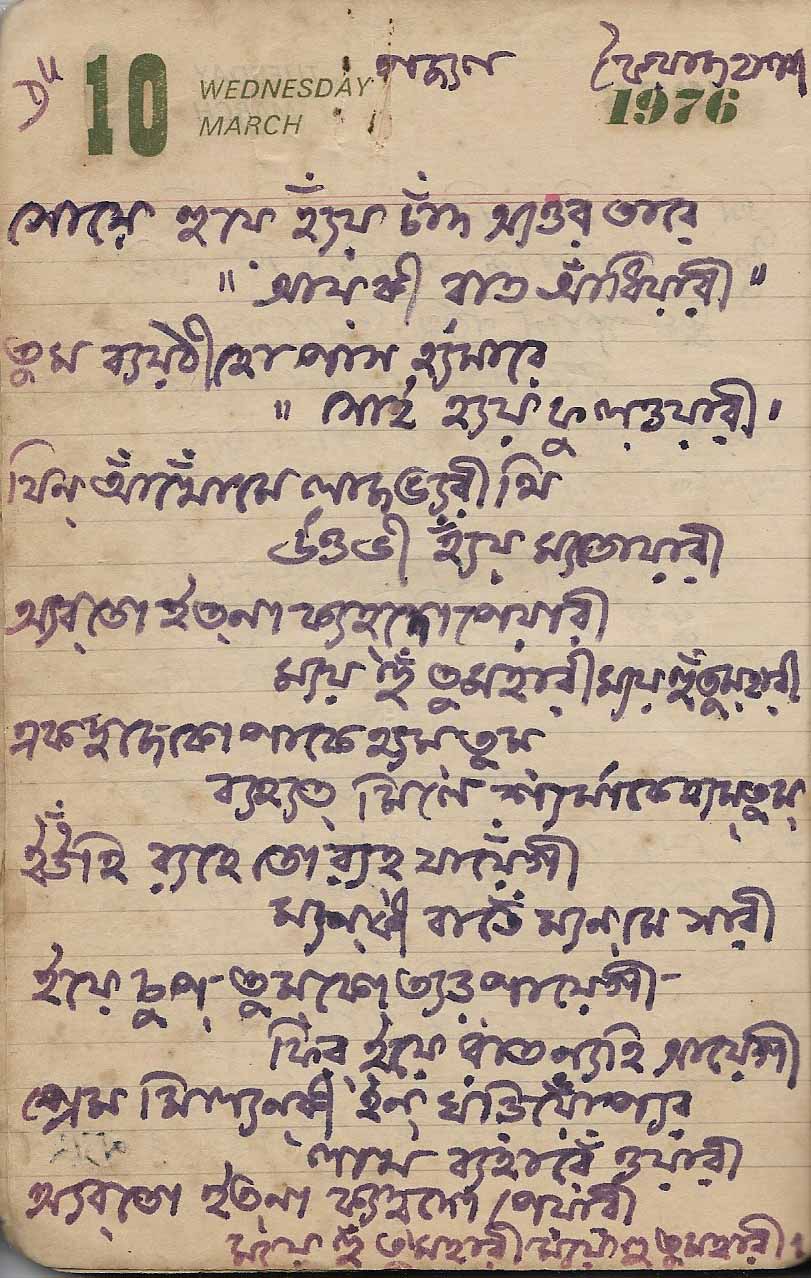 D"
10
WEDNESDAY
MARCH
1976
সোয়ে হুয়ে হ্যঁয় চাঁদ অ্যওর তারে
" আয কী রাত আঁধিয়ারী "
তুম ব্যয়ঠী হো পাস হ্যমারে
" সোই হ্যয় ফুলওয়ারী "
যিন্ আঁখোঁমে লাজ ভ্যরী থি
উওভী হ্যঁয় ম্যতোয়ারী
অ্যব্ তো ইত্না ক্যহদো পেয়ারী
ম্যয় হুঁ তুমহারী ম্যয় হুঁ তুমহারী
এক দুজেকো পাকে হ্যম তুম
ব্যহ্যত্ মিলে শ্যর্মাকে হ্যম্ তুম্
ইউঁহি র‍্যহে তো র‍্যহ যায়েঁগী
ম্যন্ কী বাতেঁ ম্যন্ মে সারী
ইয়ে চুপ্ তুমকো ত্যড়পায়েগী
ফির্ ইয়ে রাত ন্যহি আয়েগী
প্রেম মিল্যনকী ইন্ ঘড়িয়োঁ প্যর
লাখ ব্যহারেঁ ওয়ারী
অ্যব্ তো ইত্না ক্যহদো পেয়ারী
ম্যয় হুঁ তুমহারী ম্যয় হুঁ তুমহারী।